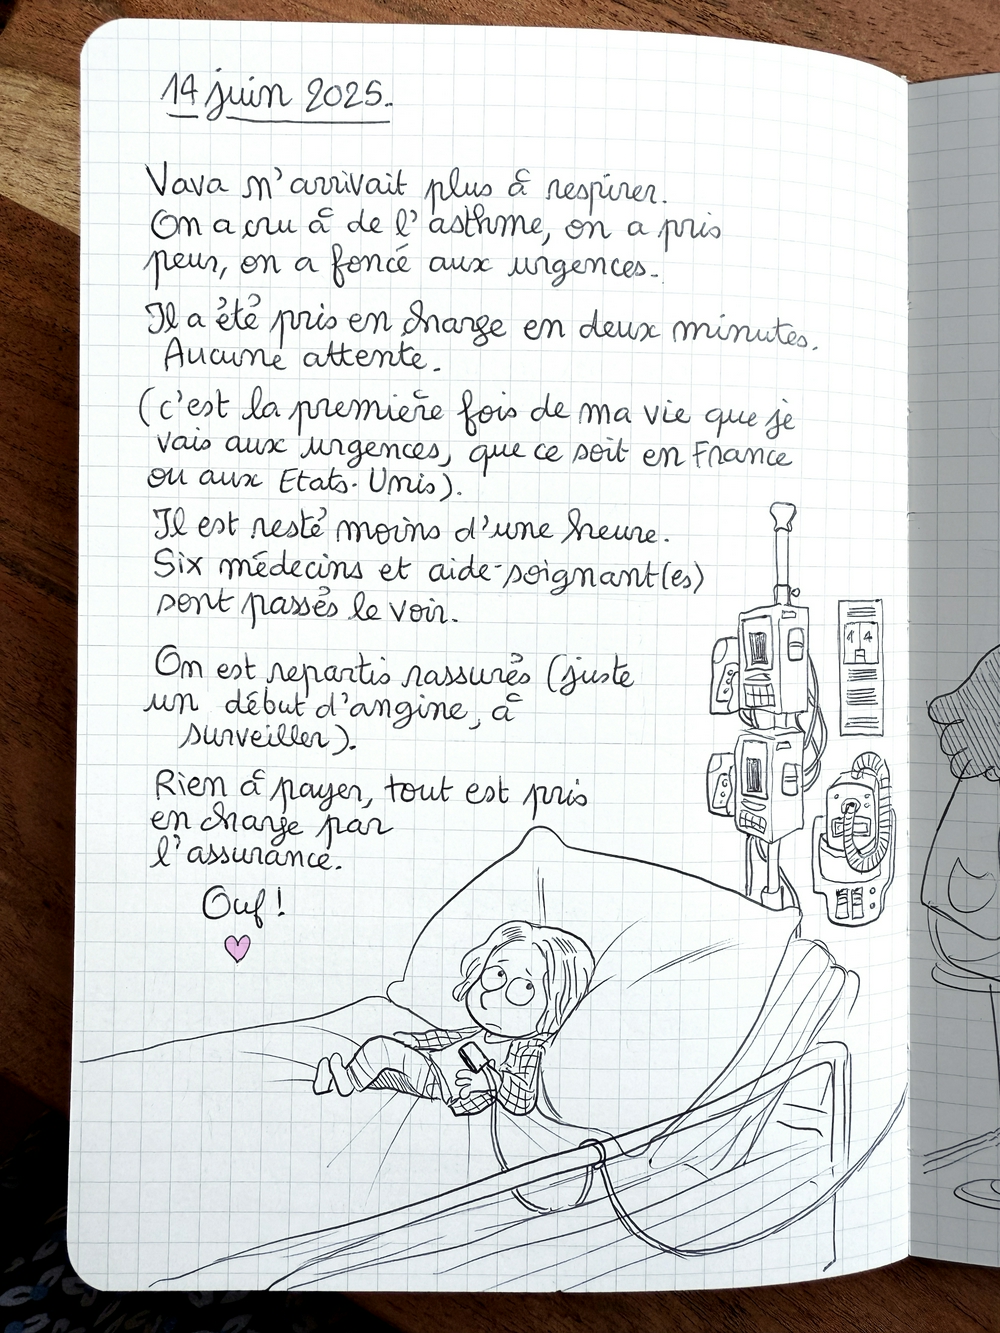 14 juin 2025.
Vava n'arrivait plus à respirer.
On a cru à de l'asthme, on a pris
peur, on a foncé aux urgences.
Il a été pris en charge en deux minutes.
Aucune attente.
(c'est la première fois de ma vie que je
vais aux urgences, que ce soit en France
ou aux Etats-Unis).
Il est resté moins d'une heure.
Six médecins et aide-soignant(es)
sont passés le voir.
On est repartis rassurés (juste
un début d'angine, à
surveiller).
Rien à payer, tout est pris
en charge par
l'assurance.
Ouf !
14